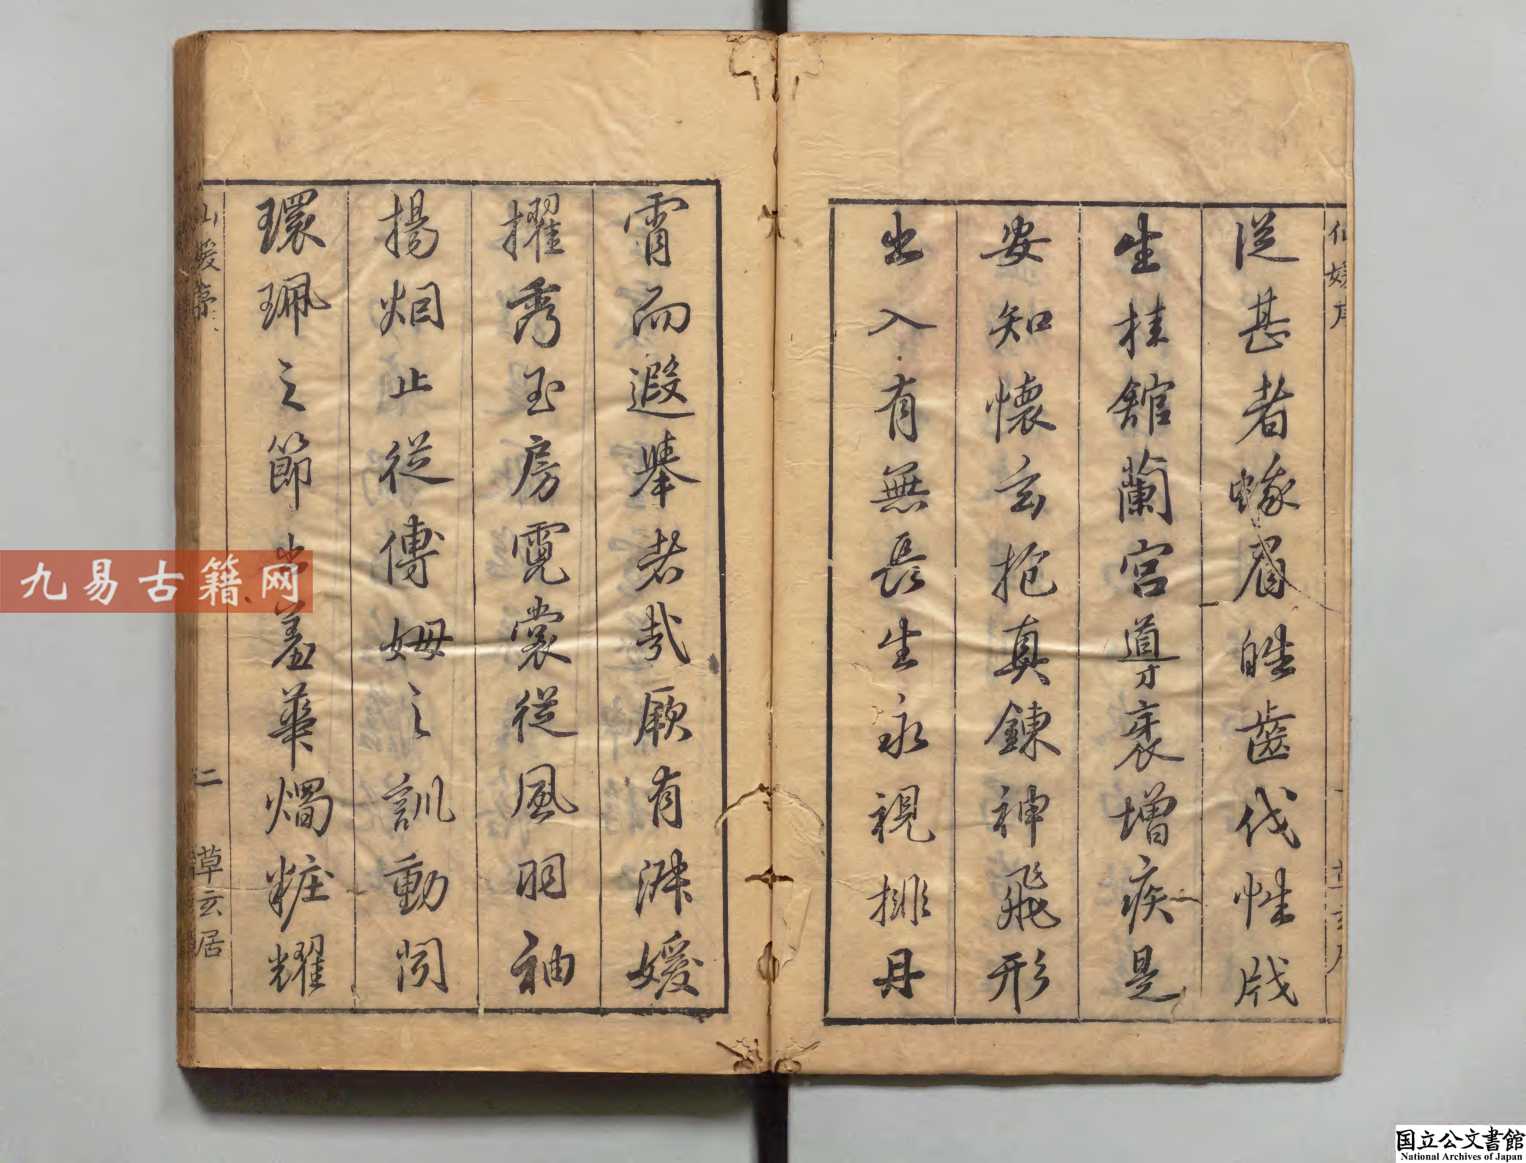 仙媛序
從甚者蛾眉皓齒伐性戕
生桂館蘭宮導衺增疾是
安知懷玄抱真鍊神飛形
出入有無長生永視排丹
霄而遐舉者哉厥有淑媛
擢秀玉房霓裳從風羽袖
揚烟止從傅姆之訓動閑
環珮之節出羞華燭粧耀
仙媛序
二
草玄居
九易古籍网
国立公文書館
National Archives of Japan